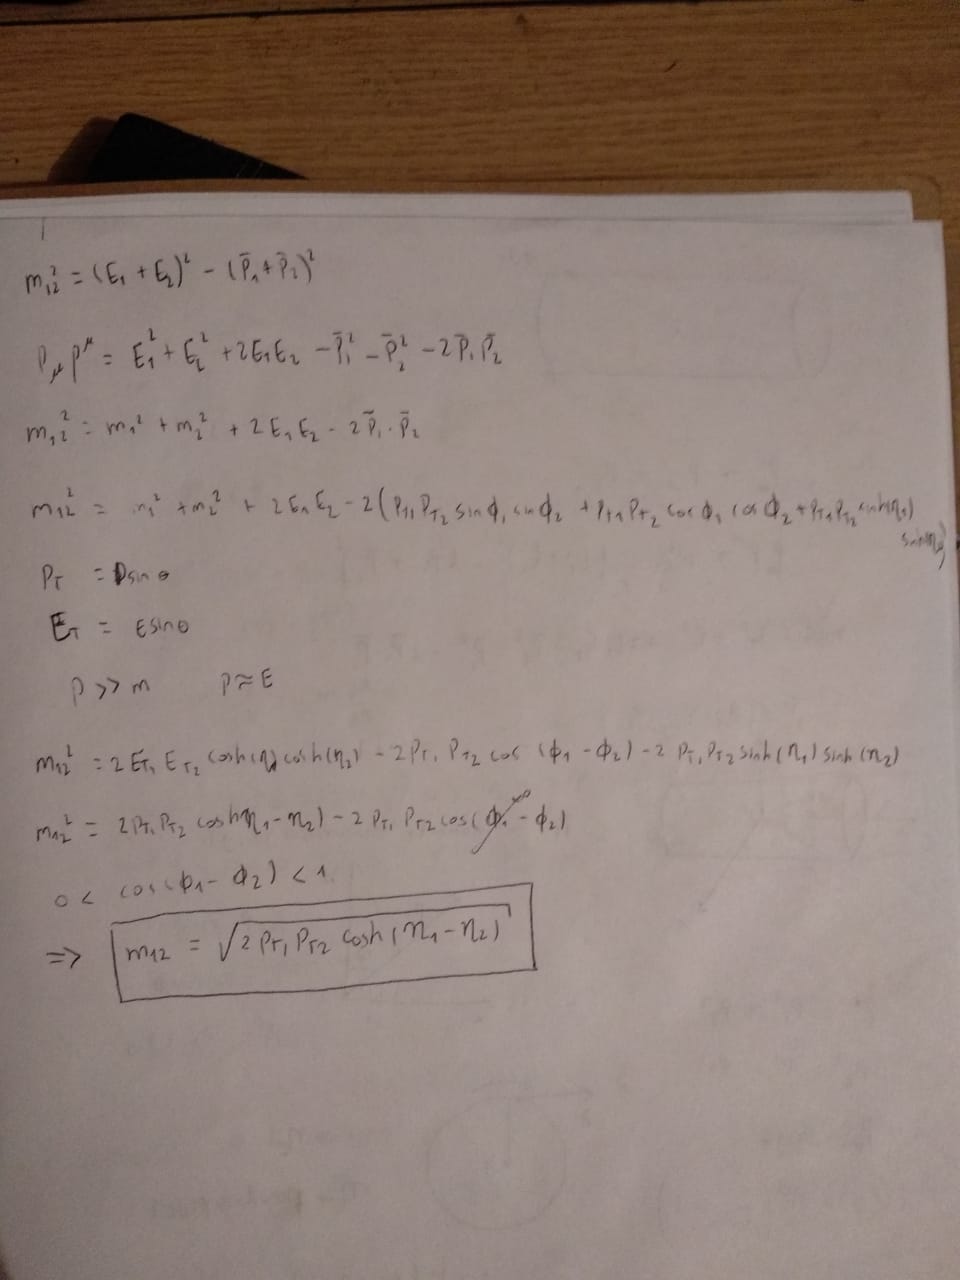 m₁₂² = (E₁ + E₂)² - (p̄₁ + p̄₂)²
PμP^μ = E₁² + E₂² + 2E₁E₂ - p̄₁² - p̄₂² - 2p̄₁p̄₂
m₁₂² = m₁² + m₂² + 2E₁E₂ - 2p̄₁·p̄₂
m₁₂² = m₁² + m₂² + 2E₁E₂ - 2(P_T1 P_T2 sin ϕ₁ sin ϕ₂ + P_T1 P_T2 cos ϕ₁ cos ϕ₂ + P_T1 P_T2 sinh(η₁)
P_T = p sin θ
E_T = E sin θ
p >> m p ≈ E
m₁₂² = 2 E_T1 E_T2 cosh(η₁) cosh(η₂) - 2 P_T1 P_T2 cos (ϕ₁ - ϕ₂) - 2 P_T1 P_T2 sinh(η₁) sinh(η₂)
m₁₂² = 2 P_T1 P_T2 cosh(η₁ - η₂) - 2 P_T1 P_T2 cos(ϕ₁ - ϕ₂)
0 < cos(ϕ₁ - ϕ₂) < 1
=> m₁₂ = √(2 P_T1 P_T2 cosh(η₁ - η₂))